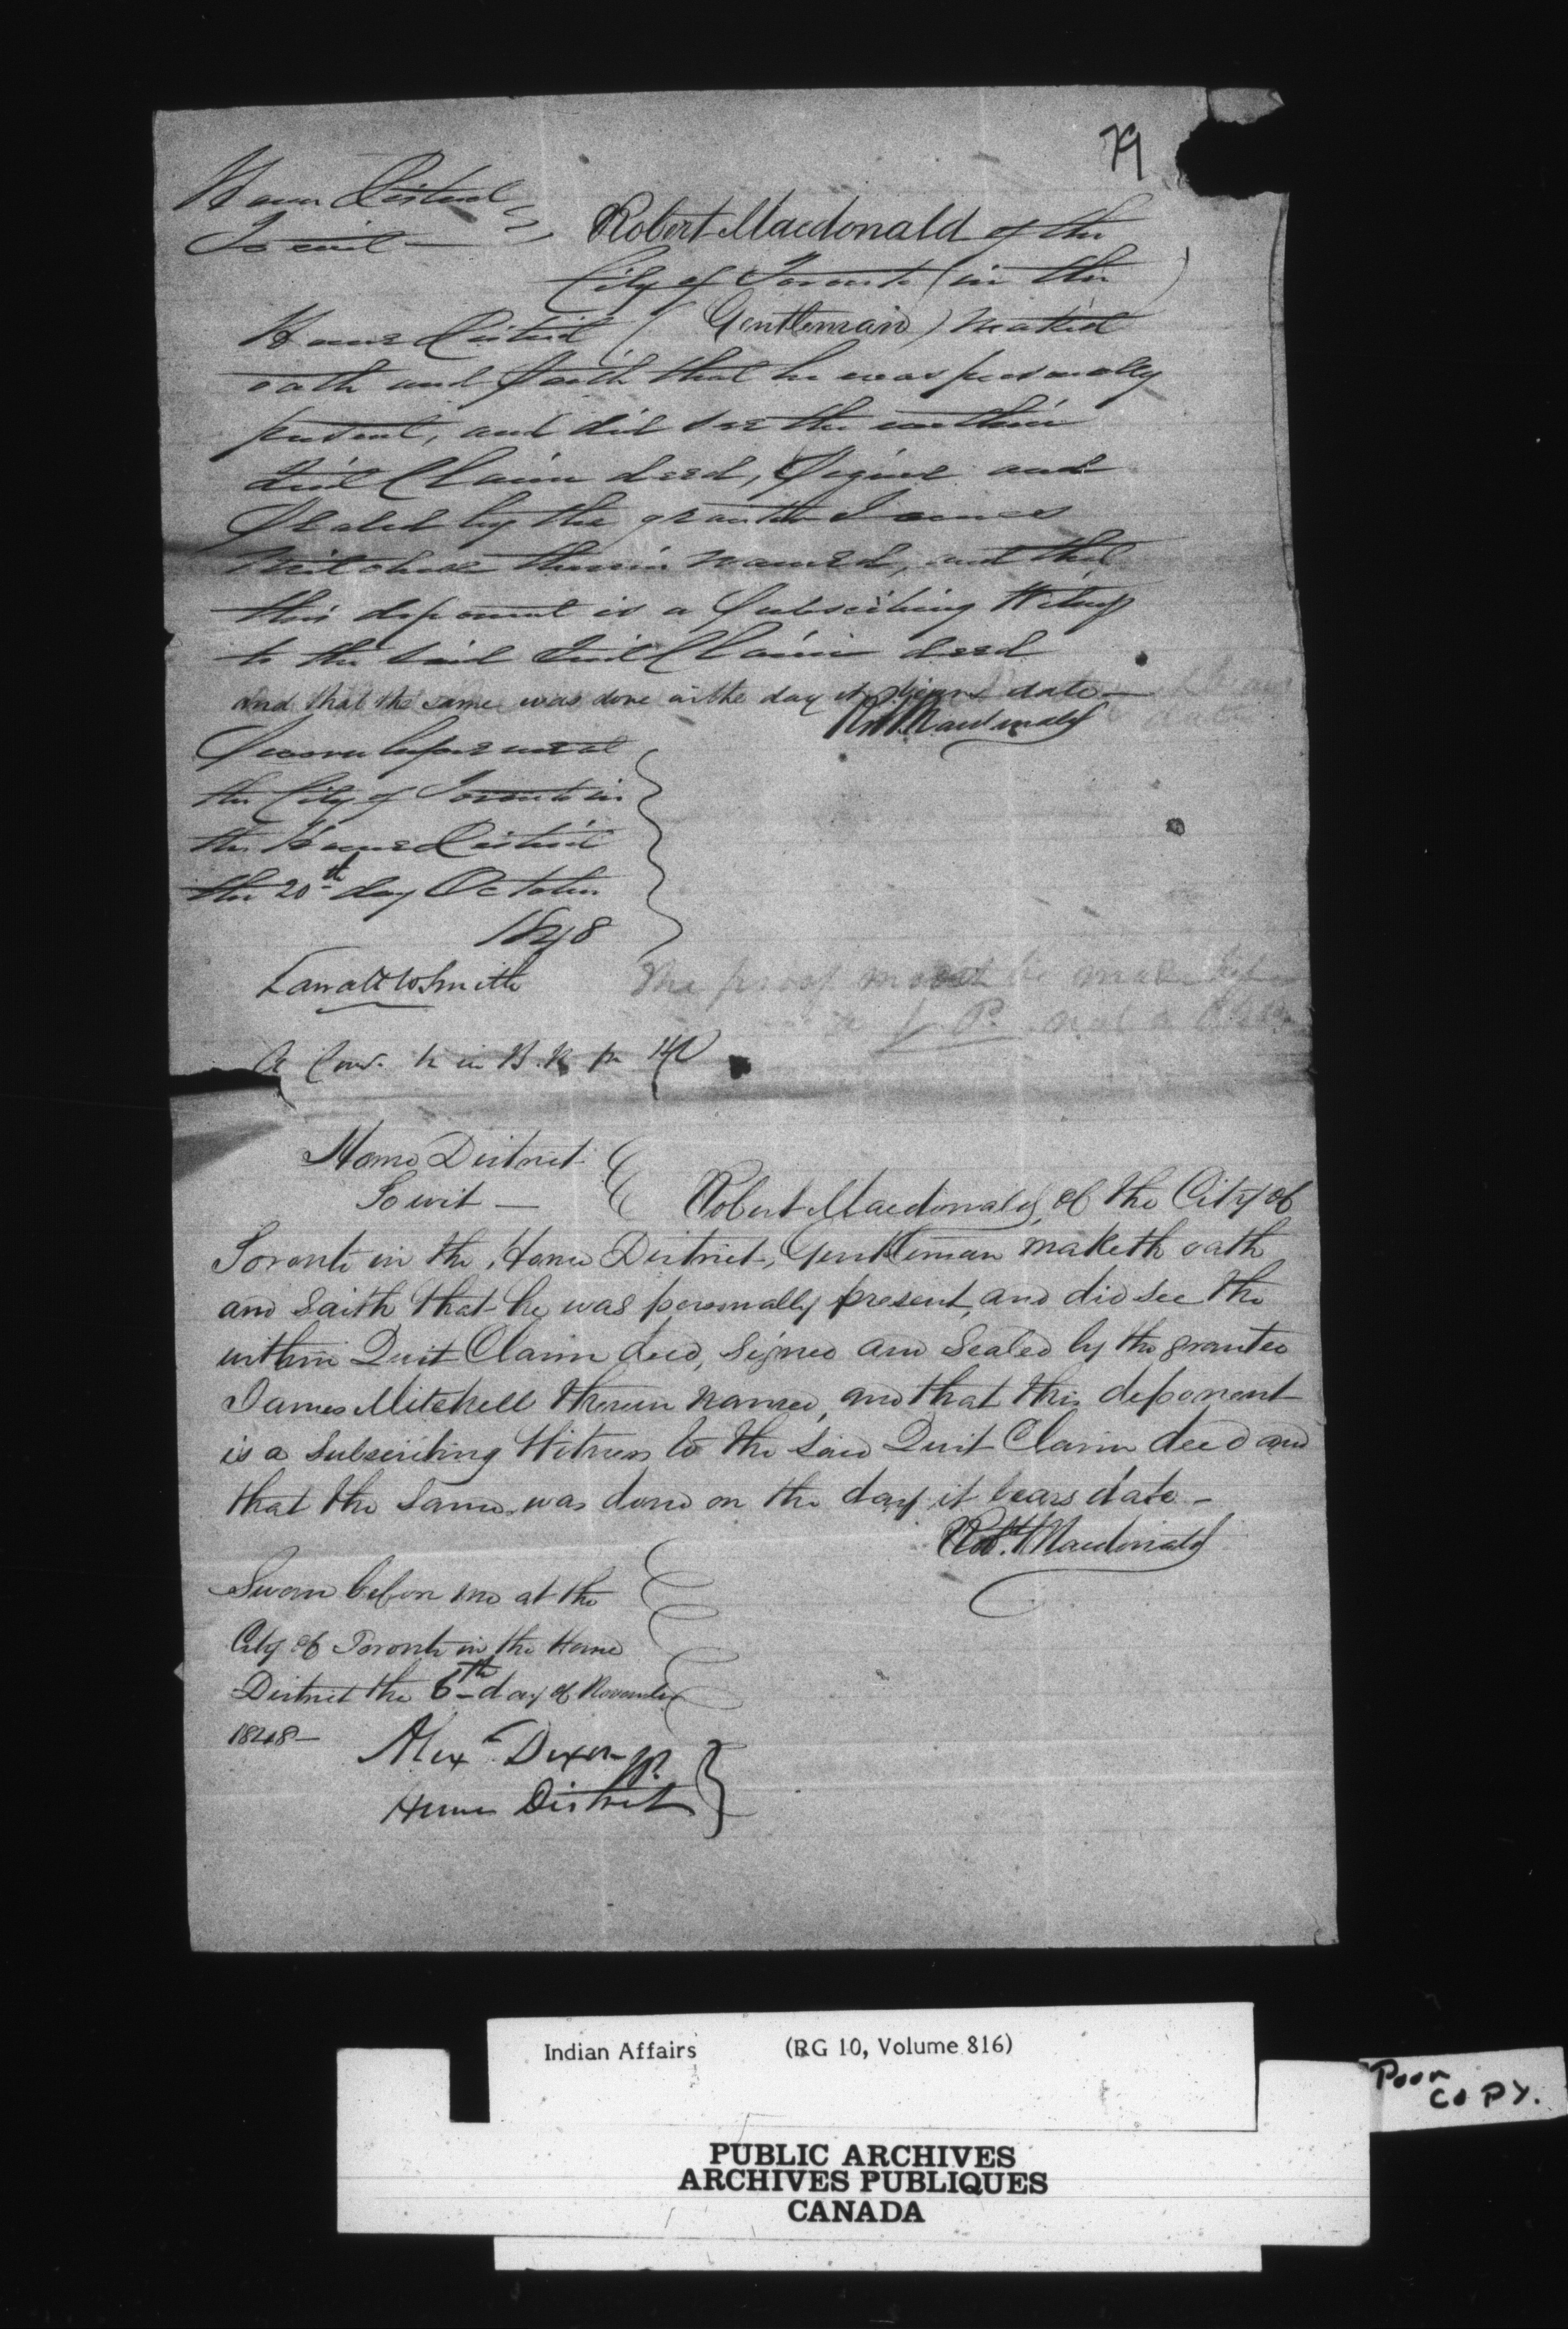 79
Home District
To wit —
Robert Macdonald of the
City of Toronto (in the
Home District (Gentleman) maketh
oath and saith that he was personally
present, and did see the within
Quit Claim deed, signed and
Sealed by the grantor James
Mitchell therein named, and that
this deponent is a Subscribing Witness
to the said Quit Claim deed
and that the same was done on the day it bears date —
Robt. Macdonald
Sworn before me at
the City of Toronto in
the Home District
the 20th day October
1848
Larratt W Smith
The proof must be made before
a J P. not a
A Com. in B. R.
Home District
To wit —
Robert Macdonald, of the City of
Toronto in the Home District, Gentleman maketh oath
and saith that he was personally present, and did see the
within Quit Claim deed, signed and sealed by the grantee
James Mitchell therein named, and that this deponent
is a Subscribing Witness to the said Quit Claim deed and
that the same was done on the day it bears date —
Robt. Macdonald
Sworn before me at the
City of Toronto in the Home
District the 6th day of November
1848 —
Alexr Dixon JP.
Home District
Indian Affairs (RG 10, Volume 816)
Poor
COPY.
PUBLIC ARCHIVES
ARCHIVES PUBLIQUES
CANADA